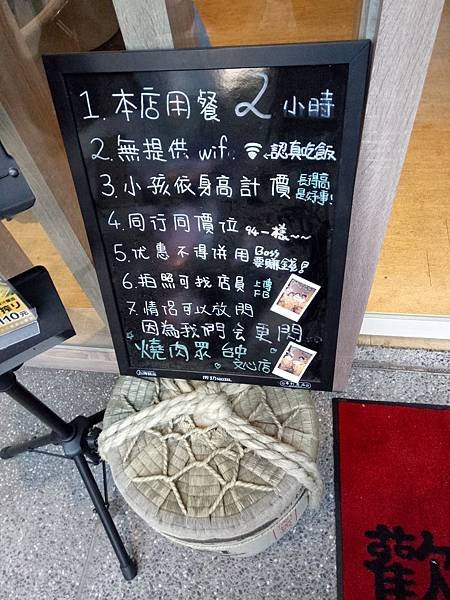 1. 本店用餐 2 小時
2. 無提供 wifi 認真吃飯
3. 小孩依身高計價 長得高是好事!
4. 同行同價位 94一樣~~
5. 优惠不得併用 Boss要賺錢!
6. 拍照可找店員 上傳FB
7. 情侶可以放閃
因為我們会更閃
燒肉眾 台中文心店
110元
歡